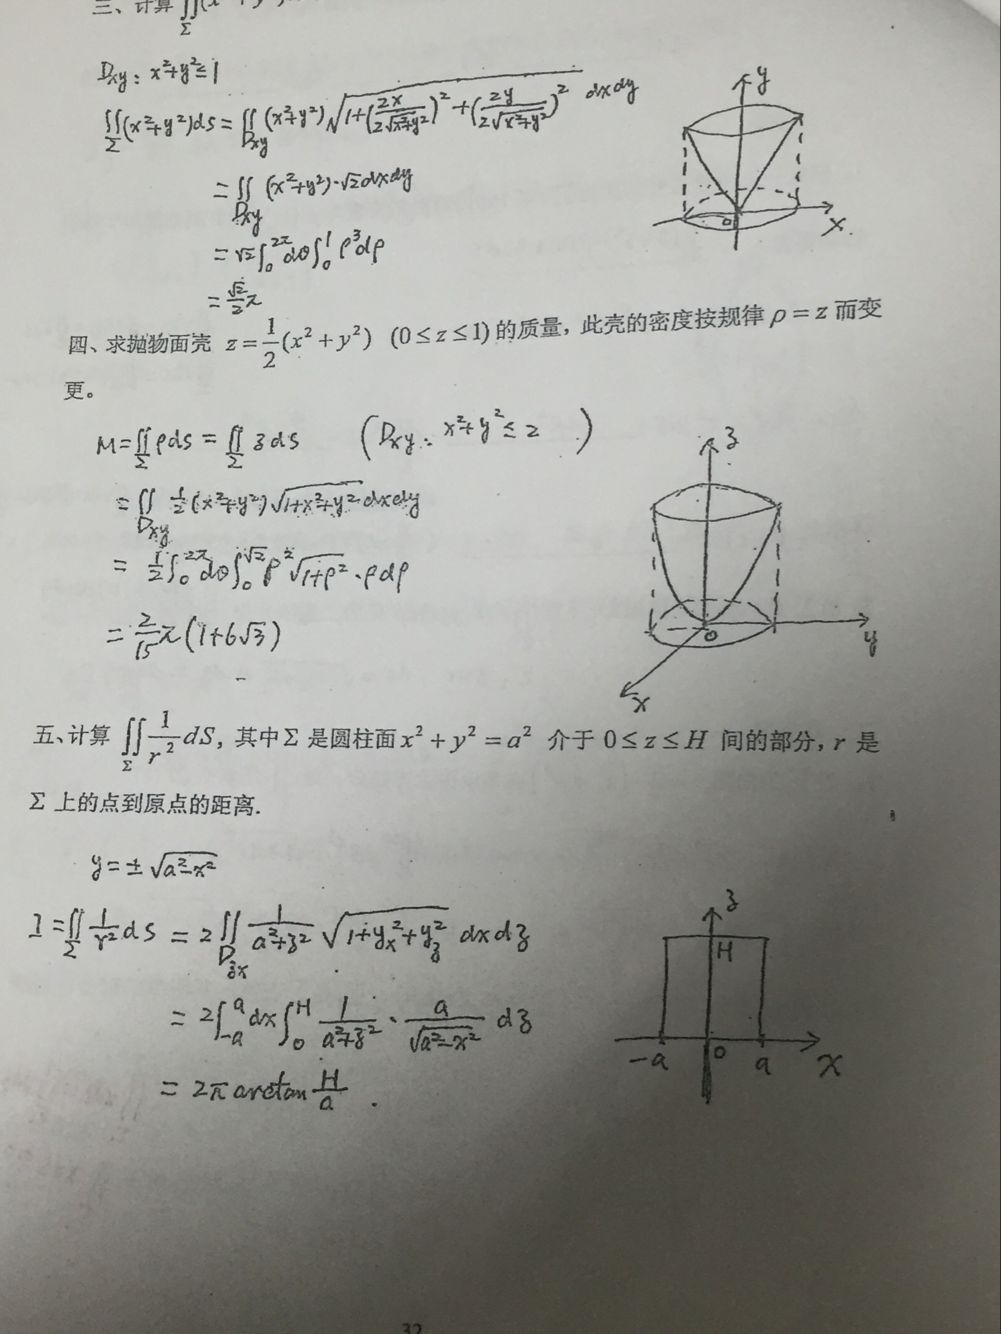 三、计算 ∬_Σ (x²+y²)
D_xy: x²+y²≤1
∬_Σ (x²+y²)ds = ∬_Dxy (x²+y²)√(1+(2x/(2√(x²+y²)))²+(2y/(2√(x²+y²)))²) dxdy
= ∬_Dxy (x²+y²)·√2dxdy
= √2∫₀^2π dθ∫₀^1 ρ³dρ
= √2/2 π
y
o
x
四、求抛物面壳 z=1/2(x²+y²) (0≤z≤1)的质量，此壳的密度按规律 ρ=z 而变
更。
M=∬_Σ ρds = ∬_Σ zds (D_xy: x²+y²≤2)
= ∬_Dxy 1/2(x²+y²)√(1+x²+y²)dxdy
= 1/2∫₀^2π dθ∫₀^√2 ρ²√(1+ρ²)·ρdρ
= 2/15 π(1+6√3)
z
o
y
x
五、计算 ∬_Σ 1/r² dS，其中Σ是圆柱面x²+y²=a² 介于 0≤z≤H 间的部分，r 是
Σ 上的点到原点的距离.
y=±√(a²-x²)
I=∬_Σ 1/r² ds = 2∬_Dzx 1/(a²+z²) √(1+y_x²+y_z²) dxdz
= 2∫_-a^a dx∫₀^H 1/(a²+z²) · a/√(a²-x²) dz
= 2π arctan H/a .
z
H
-a
o
a
x
32